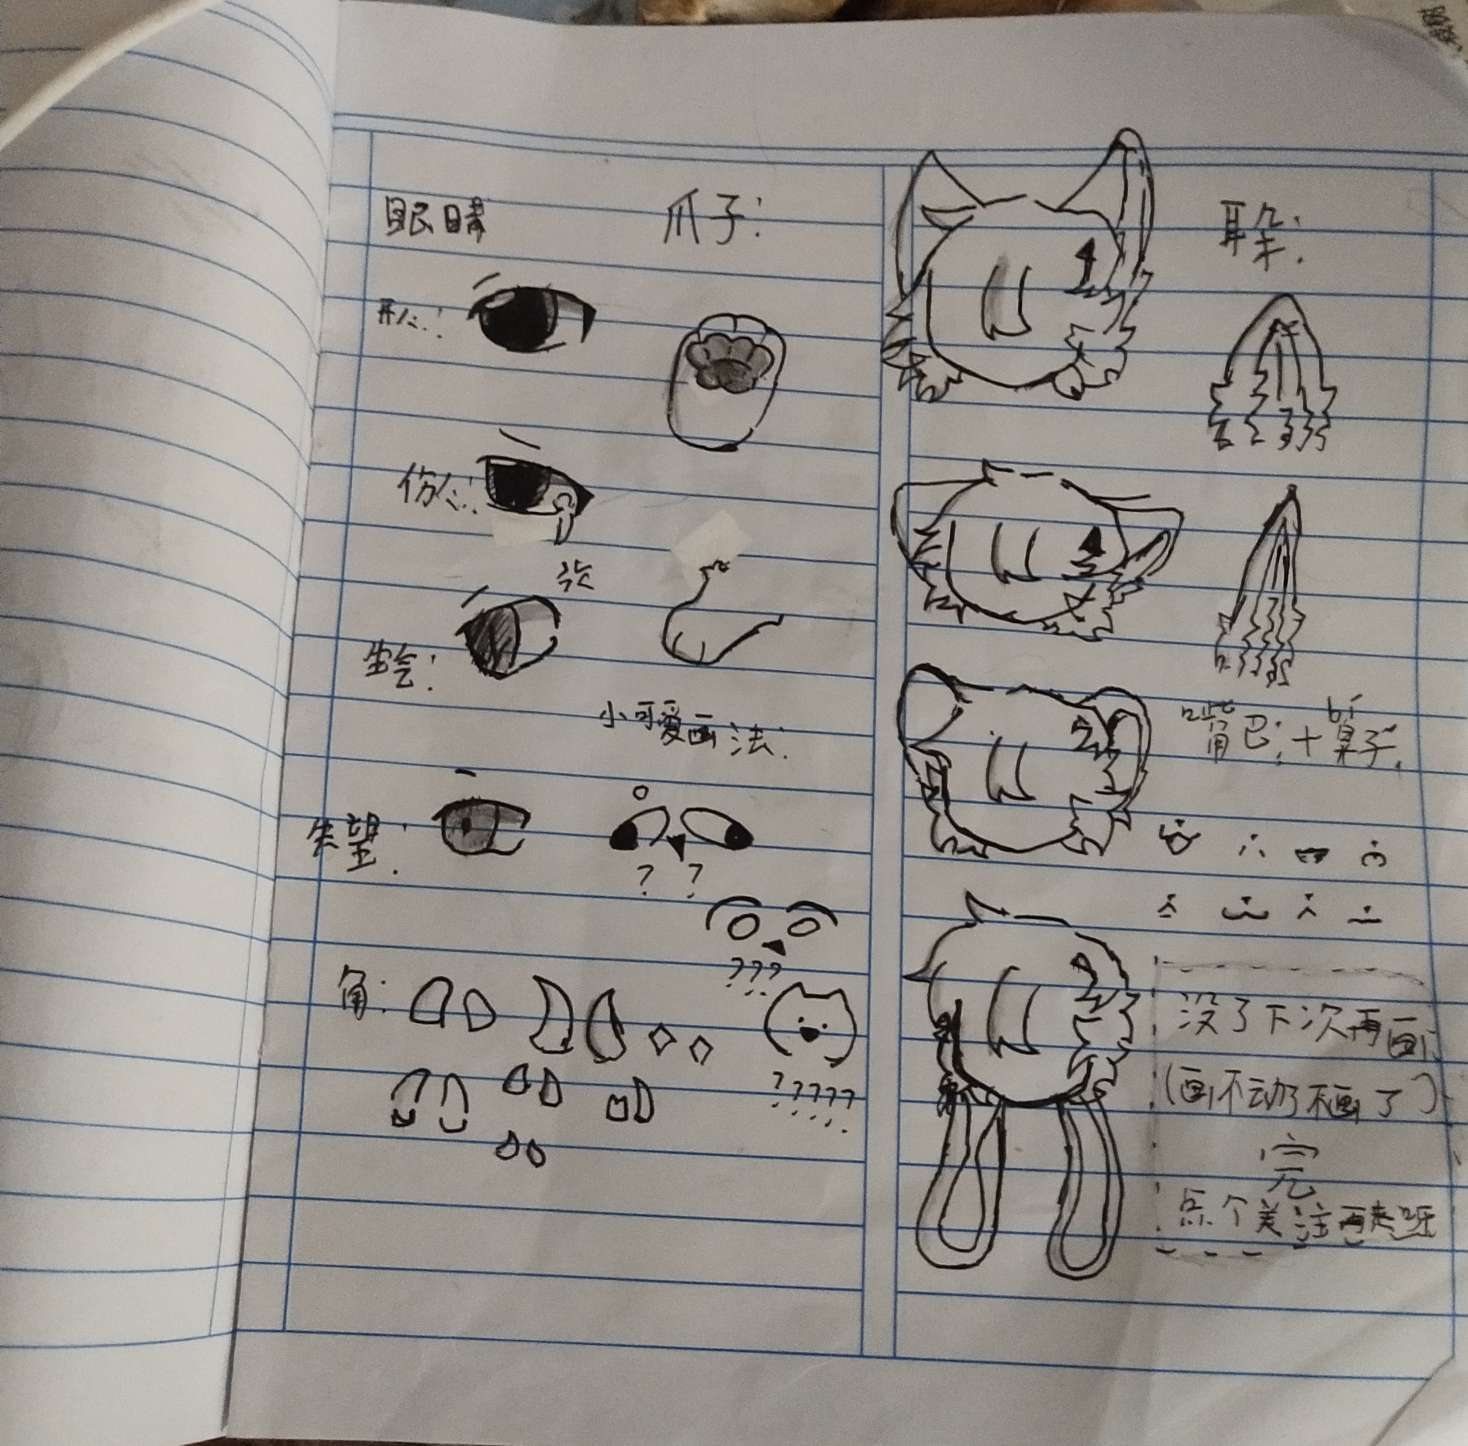 眼睛
爪子:
开心:
伤心:
生气:
小可爱画法:
失望:
? ?
???
角:
?????
耳朵:
zuǐ bí
嘴巴:+鼻子:
没了下次再画
(画不动了不画了)
完
点个关注再走呀